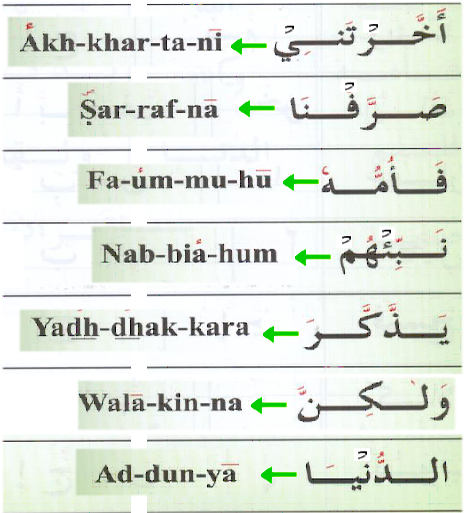 Ảkh-khar-ta-nī ← أَخَّرْتَنِيْ
Ṣar-raf-nā ← صَرَّفْنَا
Fa-ủm-mu-hū ← فَأُمُّهٗ
Nab-biả-hum ← نَبِّئْهُمْ
Yad͟h-d͟hak-kara ← يَذَّكَّرَ
Walā-kin-na ← وَلٰكِنَّ
Ad-dun-yā ← الدُّنْيَا